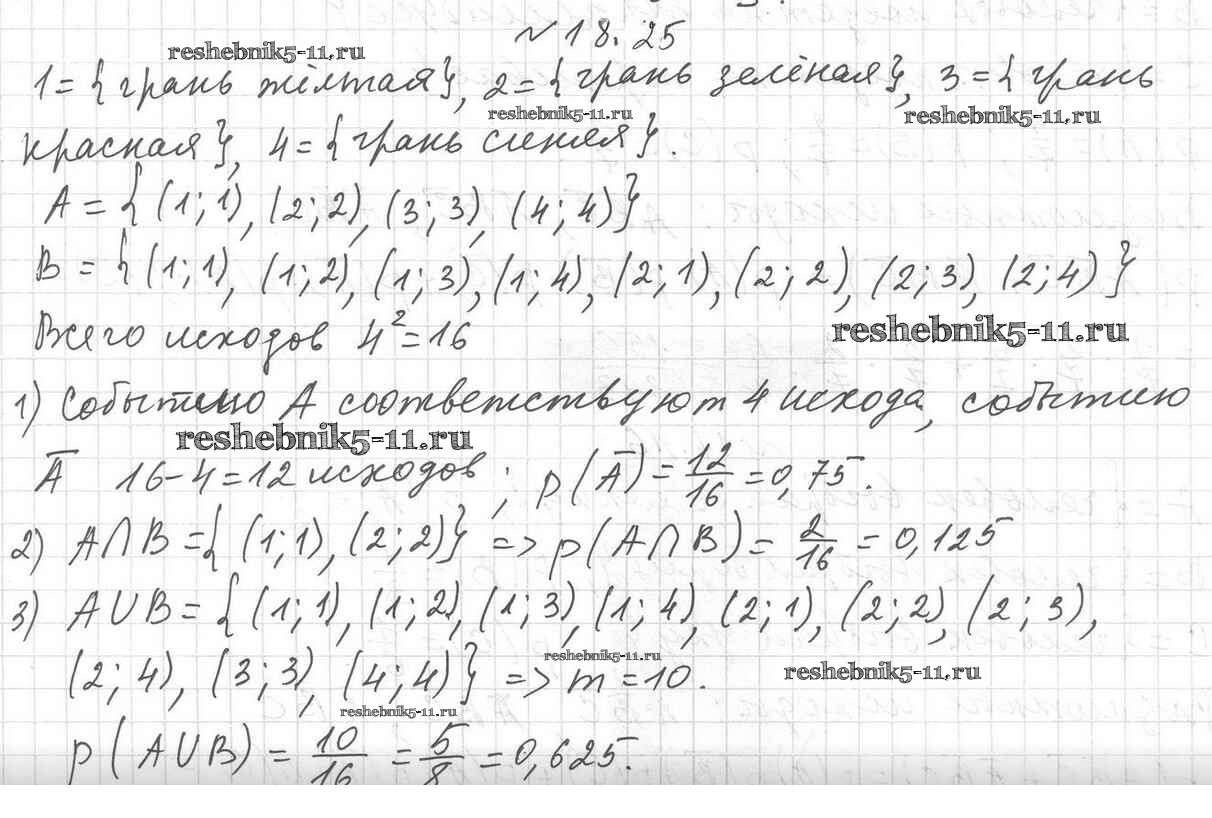 №18.25
reshebnik5-11.ru
1={грань жёлтая}, 2={грань зелёная}, 3={грань
reshebnik5-11.ru
reshebnik5-11.ru
красная}, 4={грань синяя}.
A={(1;1), (2;2), (3;3), (4;4)}
B={(1;1), (1;2), (1;3), (1;4), (2;1), (2;2), (2;3), (2;4)}
Всего исходов 4²=16
reshebnik5-11.ru
1) Событию A соответствуют 4 исхода, событию
reshebnik5-11.ru
A̅ 16-4=12 исходов; p(A̅)=12/16=0,75.
2) A∩B={(1;1), (2;2)} => p(A∩B)=2/16=0,125
3) A∪B={(1;1), (1;2), (1;3), (1;4), (2;1), (2;2), (2;3),
reshebnik5-11.ru
(2;4), (3;3), (4;4)} => m=10.
reshebnik5-11.ru
reshebnik5-11.ru
p(A∪B)=10/16=5/8=0,625.